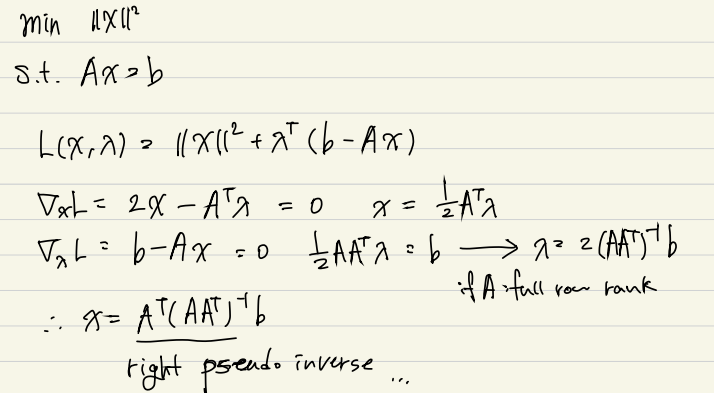 min ||x||²
s.t. Ax = b
L(x,λ) = ||x||² + λᵀ(b − Ax)
∇ₓL = 2x − Aᵀλ = 0 x = ½Aᵀλ
∇_λ L = b − Ax = 0 ½AAᵀλ = b ⟶ λ = 2(AAᵀ)⁻¹b
if A : full row rank
∴ x = Aᵀ(AAᵀ)⁻¹b
right pseudo inverse ...